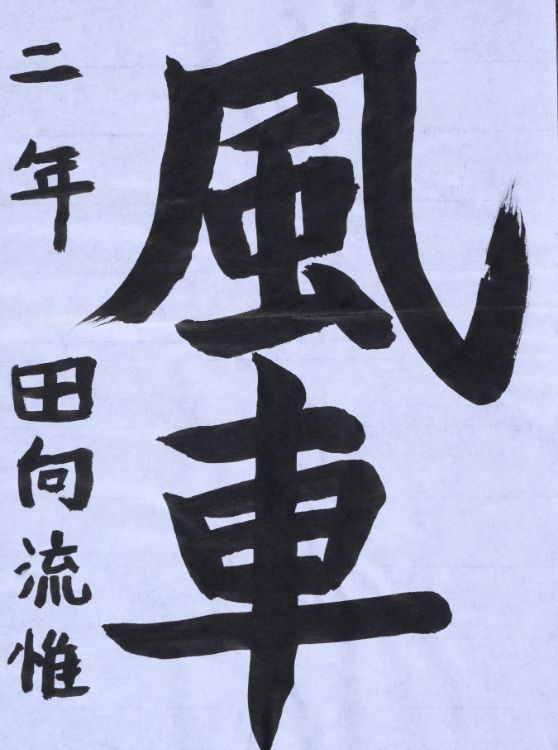 風車
二年 田向流惟